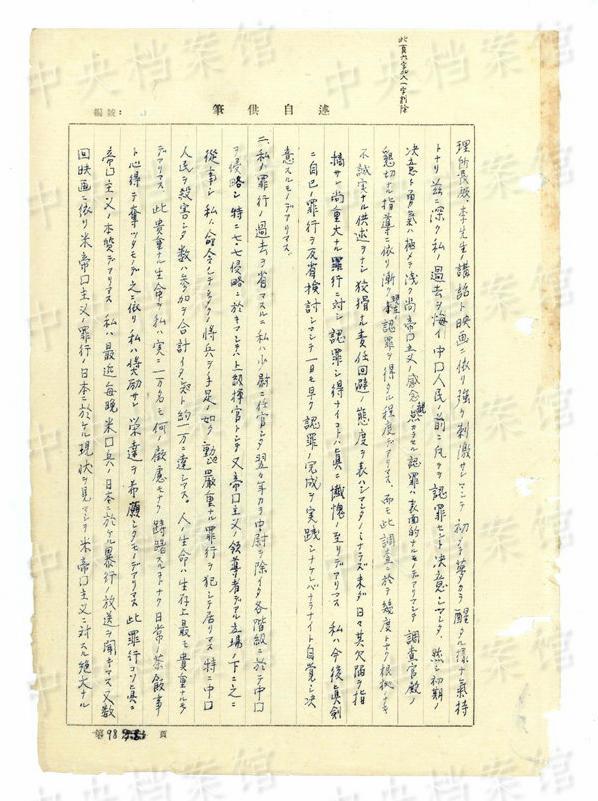 中央档案馆
此頁六字記入一字削除
編號:
筆供自述
理所長殿、李先生ノ講話ト映画ニ依リ強ク刺激サレマシテ初メテ夢カラ醒メタル様ナ氣持
トナリ茲ニ深ク私ノ過去ヲ悔イ中囗人民ノ前ニ凡テヲ認罪セント決意シマシタ、然シ初期ノ
決意ト勇氣ハ極メテ浅ク尚帝囗主義ノ感念 カラセル認罪ハ表面的ナルモノデアリマシテ調査官殿ノ
懇切ナル指導ニ依リ漸ク 認罪ヲ得タル程度デアリマス、而モ此調査ニ於テ幾度トナク根拠ノナキ
不誠実ナル供述ヲナシ狡猾ナル責任回避ノ態度ヲ表ハシマシタノミナラズ未ダ日々其欠陥ヲ指
摘サレ尚重大ナル罪行ニ対シ認罪シ得ナイコトハ眞ニ慚愧ノ至リデアリマス 私ハ今後眞剣
ニ自己ノ罪行ヲ反省検討シマシテ一日モ早ク認罪ノ完成ヲ実践シナケレバナラナイト自覚シ決
意スルモノデアリマス、
二、私ノ罪行ノ過去ヲ省マスルニ私ハ小尉ニ任官シタ翌々年カラ中尉ヲ除イタ各階級ニ於テ中囗
ヲ侵略シ特ニ七、七侵略ニ於キマシテハ上級指揮官トシテ又帝囗主義ノ領導者デアル立場ノ下ニ之ニ
從事シ私ノ命令シタ多クノ將兵ヲ手足ノ如ク動 嚴重ナル罪行ヲ犯シテ居リマス 特ニ中囗
人民ヲ殺害シタ数ハ参加ヲ合計イタシマシテ約一万ニ達シマス。人ノ生命ハ生存上最モ貴重ナルモ
デアリマス 此貴重ナル生命ヲ私ハ実ニ一万名モ何ノ顧慮モナク躊躇スルコトナク日常ノ茶飯事
ト心得テ奪ツタモノデ之ニ依リ私ハ奬励サレ栄達ヲ希願シタモノデアリマス 此罪行コソ眞ニ
帝囗主義ノ本質デアリマス 私ハ最近毎晩米囗兵ノ日本ニ於ケル暴行ノ放送ヲ聞キマス又数
回映画ニ依リ米帝囗主義ノ罪行ノ日本ニ於ケル現状ヲ見マシテ米帝囗主義ニ対スル絶大ナル
第98頁